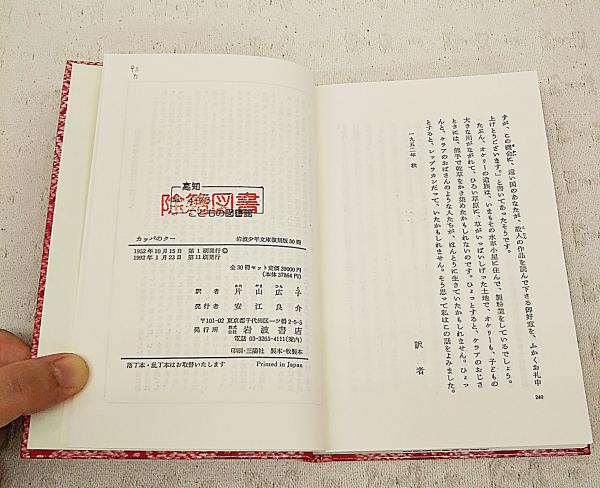 すが、この機会に、遠い国のあなたが、故人の作品を読んで下さる御好意を、ふかくお礼申
上げとうございます。』と書いてあったそうです。
たぶん、オケリーの遺族は、いまもその水車小屋に住んで、製粉業をしているでしょう。
大きな川がながれて、ひろい草原に、草がいっぱいしげった土地で、オケリーも、子どもの
ときには、熊手で乾草をかき集めたかもしれないのです。ひょっとすると、ケラアのおじさ
んと、ケラアのおばさんのような人たちが、ほんとうに生きていたかもしれません。ひょっ
とすると、レップラカンだって、いたかもしれません。そう思って私はこの話をよみました。
一九五二年 秋
訳者
243
高知
こどもの図書館
除籍図書
カッパのクー
岩波少年文庫復刻版30冊
1952年10月15日 第1刷発行©
1992年1月23日 第11刷発行
全30冊セット定価39000円
(本体37864円)
訳者 片山広子
発行者 安江良介
〒101-02 東京都千代田区一ツ橋2-5-5
発行所 株式会社 岩波書店
電話 03-3265-4111(案内)
印刷・三陽社 製本・牧製本
落丁本・乱丁本はお取替いたします
Printed in Japan